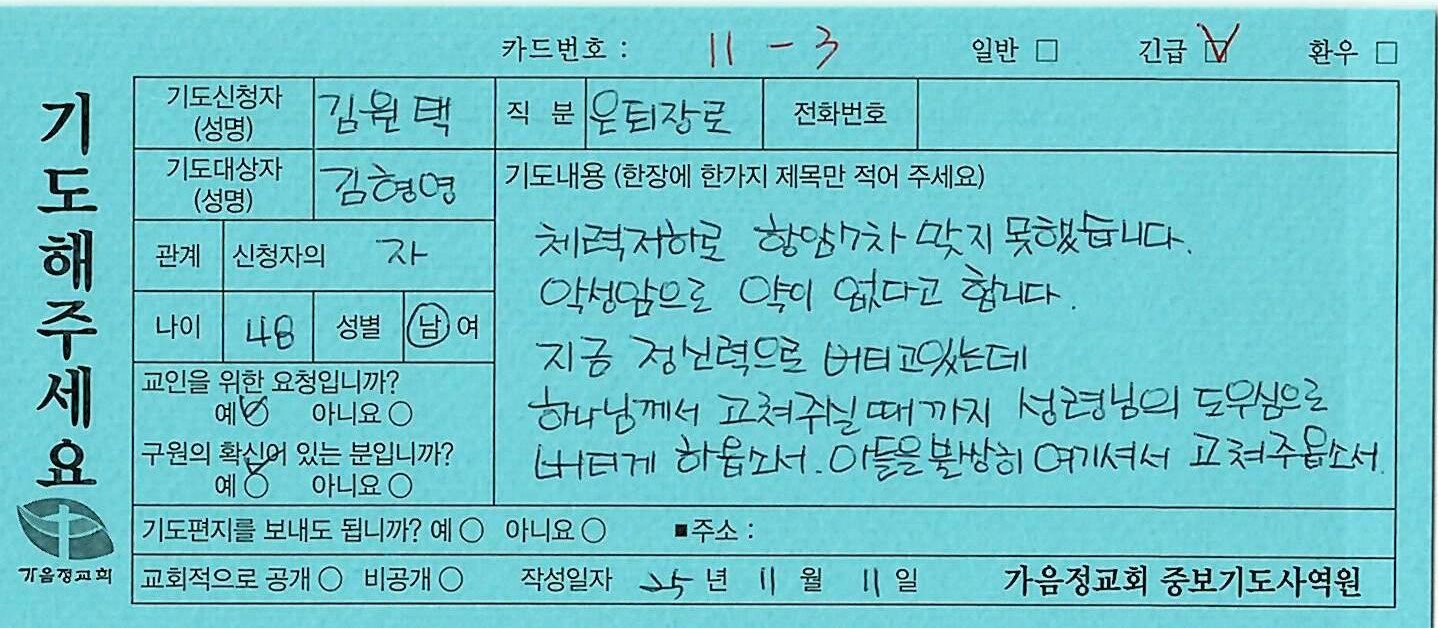 카드번호 : 11 - 3 일반 □ 긴급 ☑ 환우 □
기도해주세요
기도신청자 (성명) 김원택 직 분 은퇴장로 전화번호
기도대상자 (성명) 김형영
관계 신청자의 자
나이 48 성별 남 여
교인을 위한 요청입니까?
예 ○ 아니요 ○
구원의 확신이 있는 분입니까?
예 ○ 아니요 ○
기도내용 (한장에 한가지 제목만 적어 주세요)
체력저하로 항암17차 맞지 못했습니다.
악성암으로 약이 없다고 합니다.
지금 정신력으로 버티고있는데
하나님께서 고쳐주실때까지 성령님의 도우심으로
버티게 하옵소서. 아들을불쌍히 여기셔서 고쳐주옵소서.
기도편지를 보내도 됩니까? 예 ○ 아니요 ○ ■주소 :
교회적으로 공개 ○ 비공개 ○ 작성일자 25 년 11 월 11 일 가음정교회 중보기도사역원
가음정교회